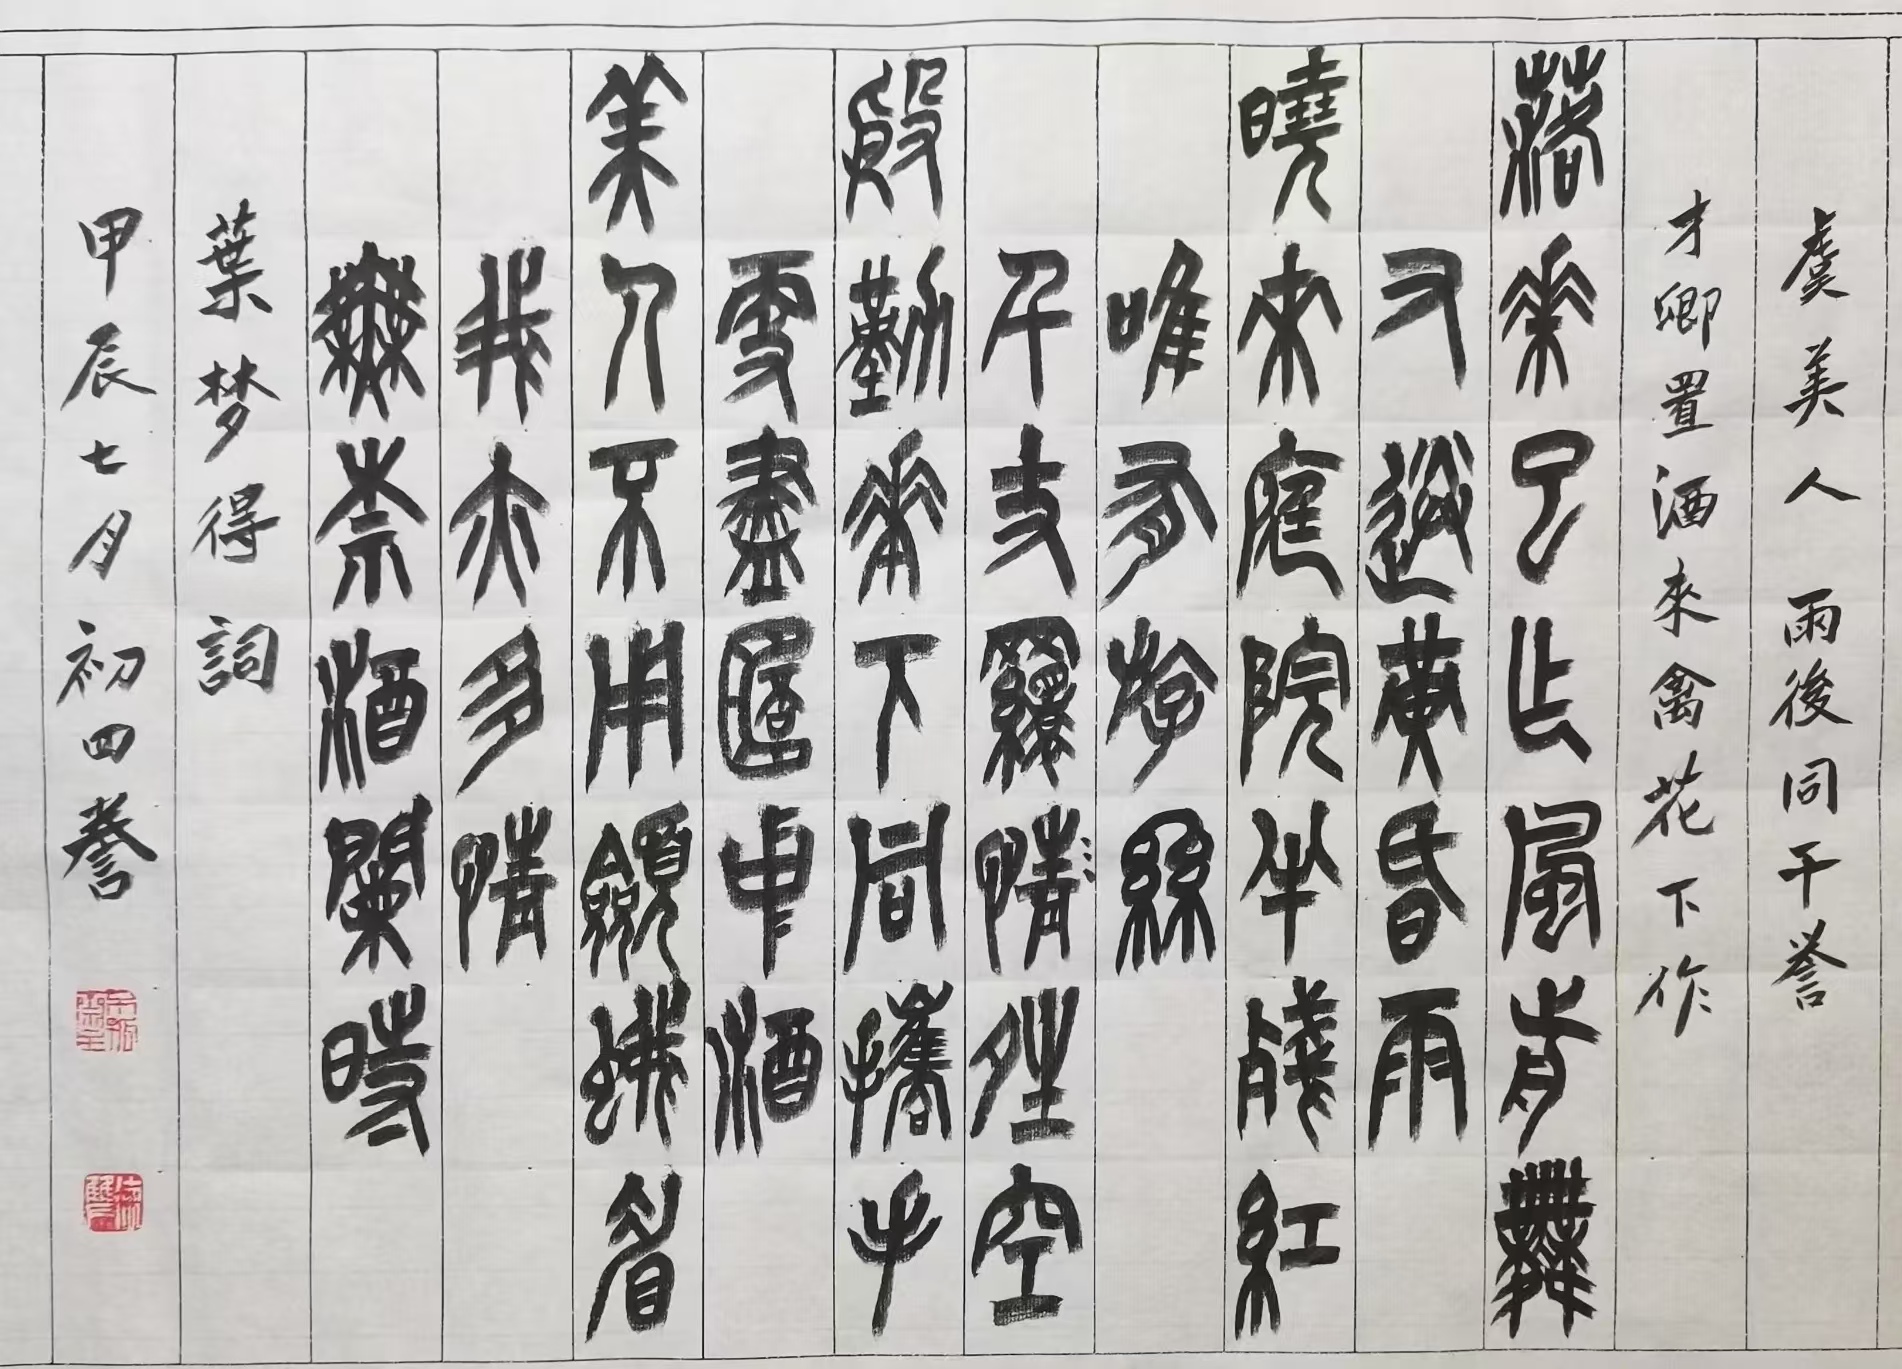 虞美人 雨後同干誉
才卿置酒来禽花下作
落花已作風前舞
又送黄昏雨
曉来庭院半殘紅
唯有游絲
千丈罥情晴空
殷勤花下同攜手
更盡杯中酒
美人不用斂蛾眉
我亦多情
無奈酒闌時
葉梦得詞
甲辰七月初四誊